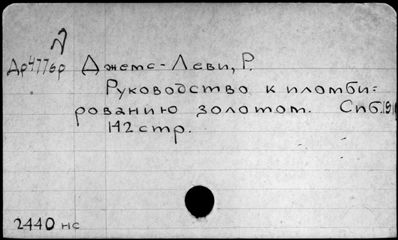 Л
Др477вр Джемс-Леви, Р.
Руководство к пломби=
рованию золотом. Спб.
142 стр.
2440 нс